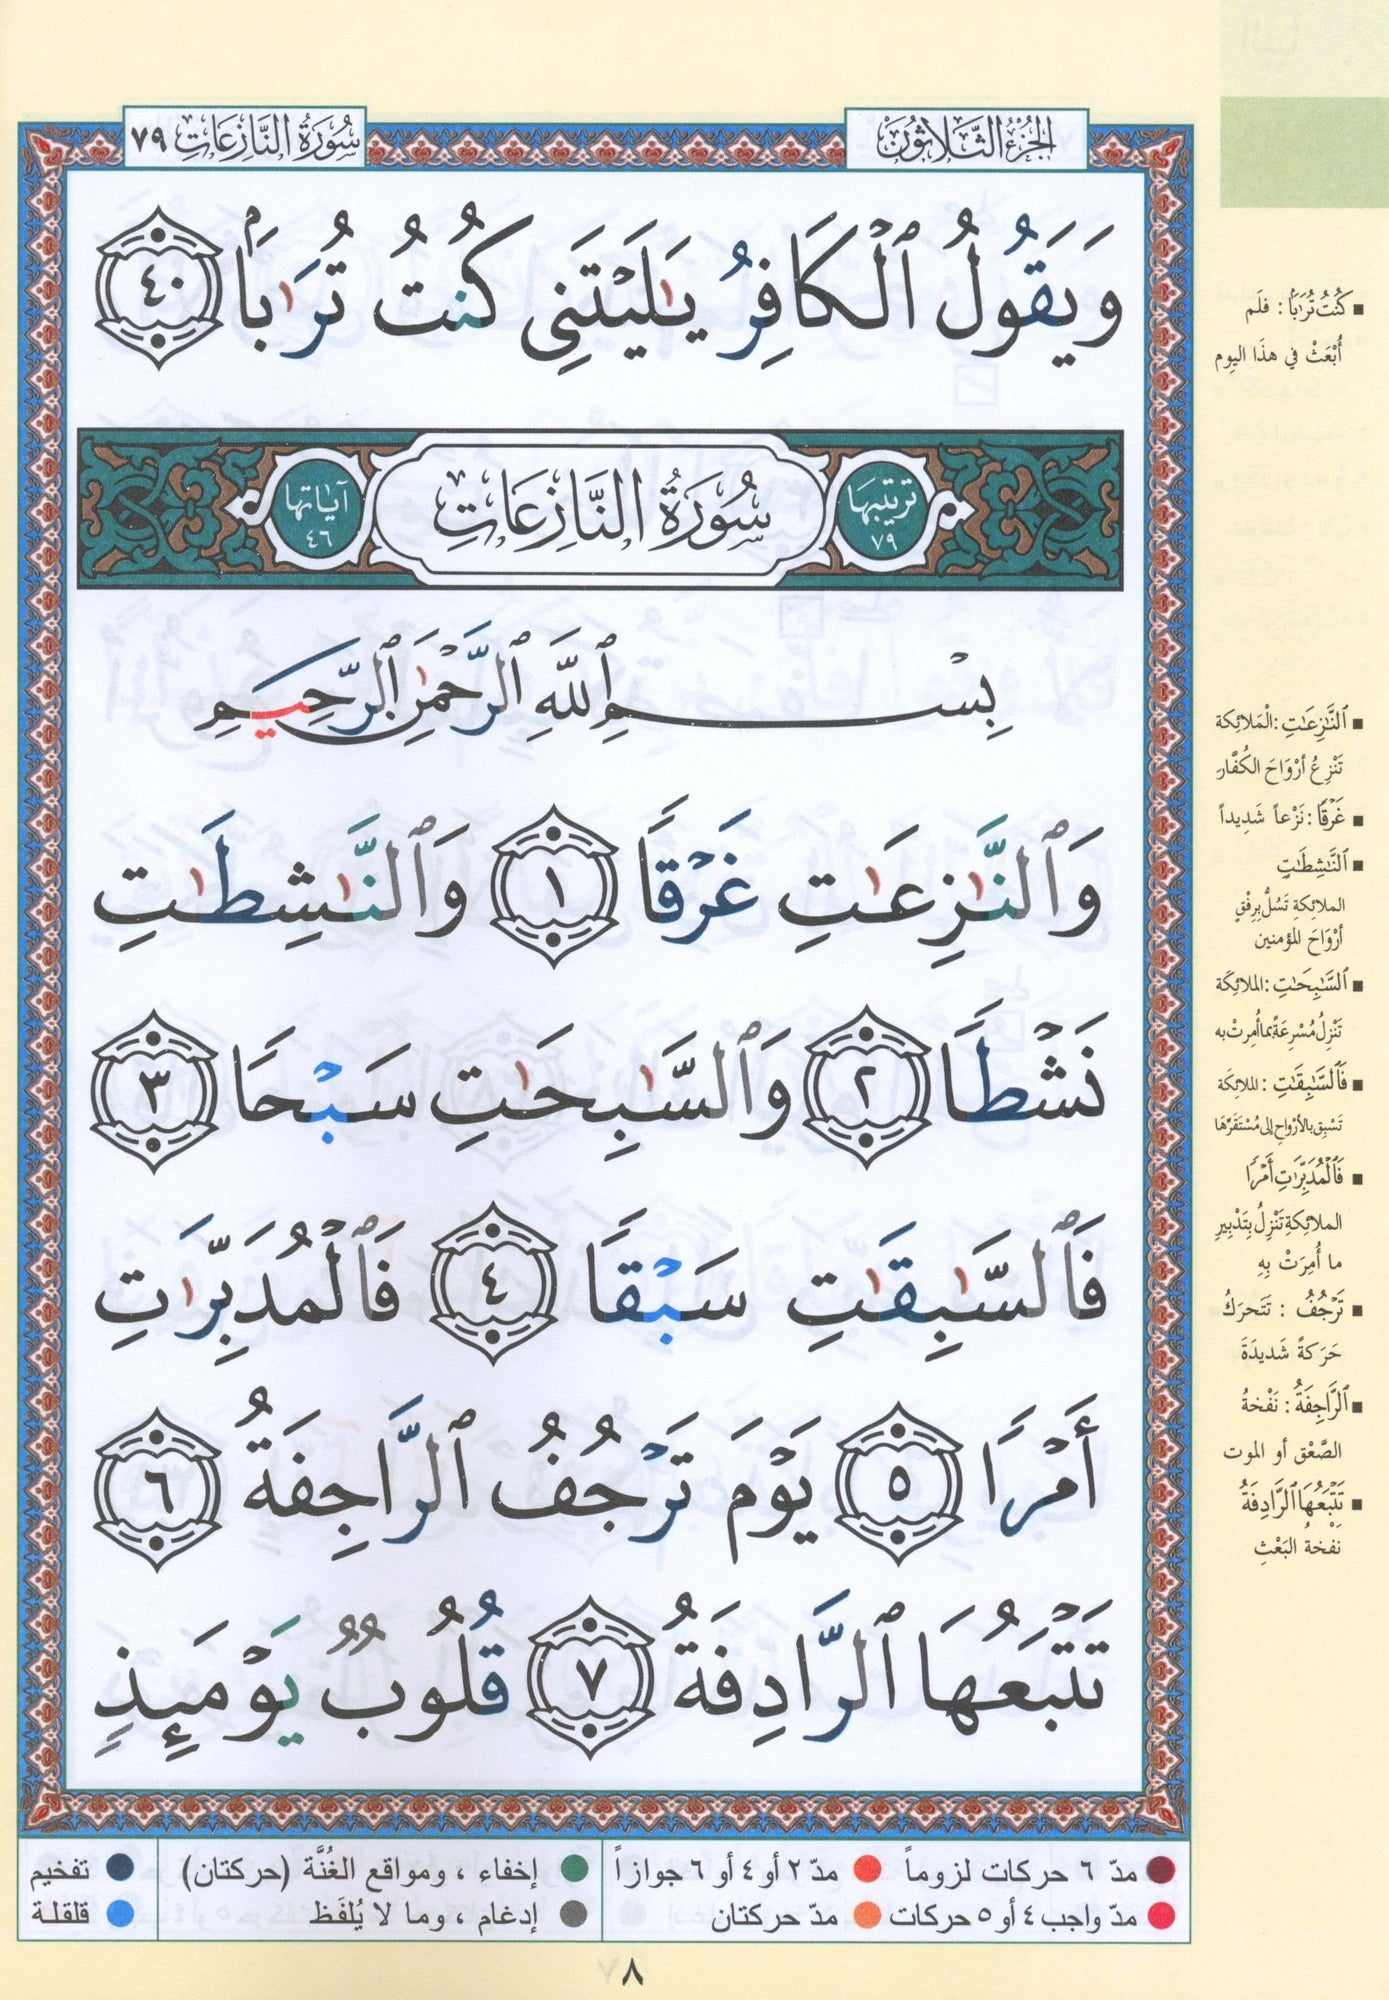 الجزء الثلاثون
سورة النازعات ٧٩
وَيَقُولُ ٱلْكَافِرُ يَـٰلَيْتَنِى كُنتُ تُرَٰبَۢا ٤٠
ترتيبها ٧٩
سُورَةُ النَّازِعَاتِ
آياتها ٤٦
بِسْمِ ٱللَّهِ ٱلرَّحْمَـٰنِ ٱلرَّحِيمِ
وَٱلنَّـٰزِعَـٰتِ غَرْقًا ١ وَٱلنَّـٰشِطَـٰتِ
نَشْطًا ٢ وَٱلسَّـٰبِحَـٰتِ سَبْحًا ٣
فَٱلسَّـٰبِقَـٰتِ سَبْقًا ٤ فَٱلْمُدَبِّرَٰتِ
أَمْرًا ٥ يَوْمَ تَرْجُفُ ٱلرَّاجِفَةُ ٦
تَتْبَعُهَا ٱلرَّادِفَةُ ٧ قُلُوبٌ يَوْمَئِذٍ
كُنتُ تُرَٰبًا : فلَم
أُبْعَثْ في هذَا اليوم
ٱلنَّـٰزِعَـٰتِ : الْمَلائِكة
تَنْزِعُ أرْوَاحَ الكُفَّار
غَرْقًا : نَزْعاً شَدِيداً
ٱلنَّـٰشِطَـٰتِ
الملائكةِ تَسُلُّ بِرِفْقٍ
أرْوَاحَ المؤمنين
ٱلسَّـٰبِحَـٰتِ : الملائِكَة
تَنْزِلُ مُسْرِعَةً بما أُمِرتْ به
فَٱلسَّـٰبِقَـٰتِ : الملائِكَة
تَسْبِق بالأرْوَاحِ إلى مُسْتَقَرِّهَا
فَٱلْمُدَبِّرَٰتِ أَمْرًا
الملائِكةِ تَنْزِلُ بِتَدْبِيرِ
ما أُمِرَتْ بِهِ
تَرْجُفُ : تَتَحرَكُ
حَرَكةً شَدِيدَةَ
ٱلرَّاجِفَةُ : نَفْخةُ
الصَّعْق أو الموت
تَتْبَعُهَا ٱلرَّادِفَةُ
نَفْخةُ البَعْثِ
مدّ ٦ حركات لزوماً
مدّ ٢ أو ٤ أو ٦ جوازاً
إخفاء ، ومواقع الغُنَّة (حركتان)
تفخيم
مدّ واجب ٤ أو ٥ حركات
مدّ حركتان
إدغام ، وما لا يُلفَظ
قلقلة
٨